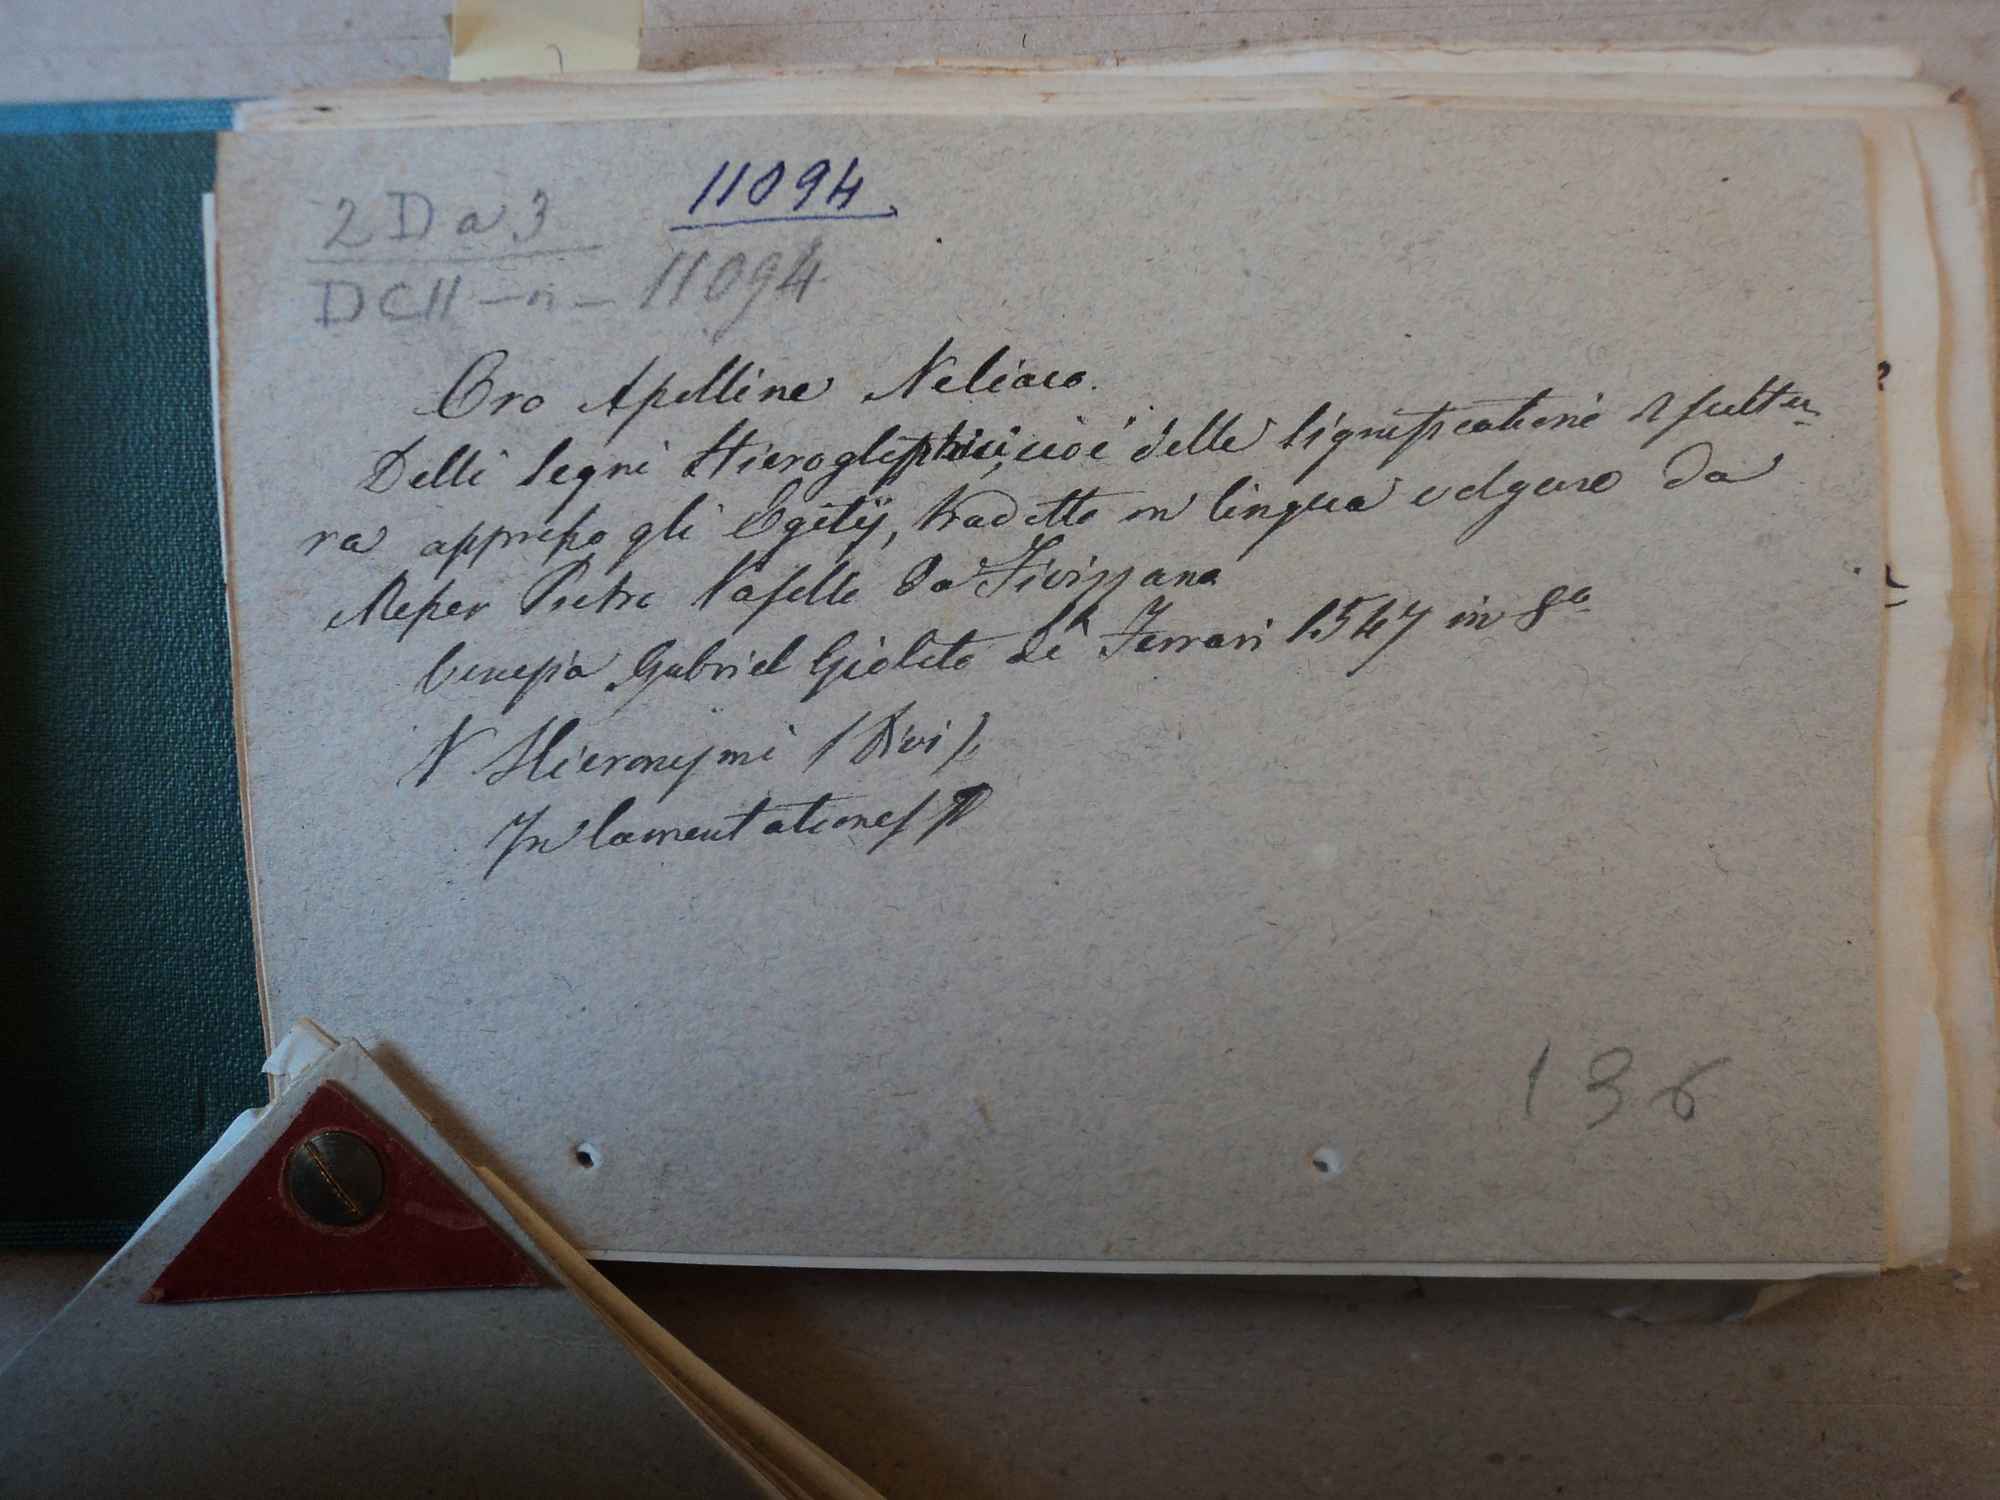 2 D a 3 11094
DCII - n - 11094
Oro Apolline Neliaco.
Delli Segni Hierogliphici, cioè delle significationi di scultu-
ra appresso gli Egitij, tradotto in lingua volgare da
Messer Pietro Vasolli da Fivizzano
Venezia Gabriel Giolito de Ferrari 1547 in 8º
V Hieronymi (Divi)
In lamentationes
136